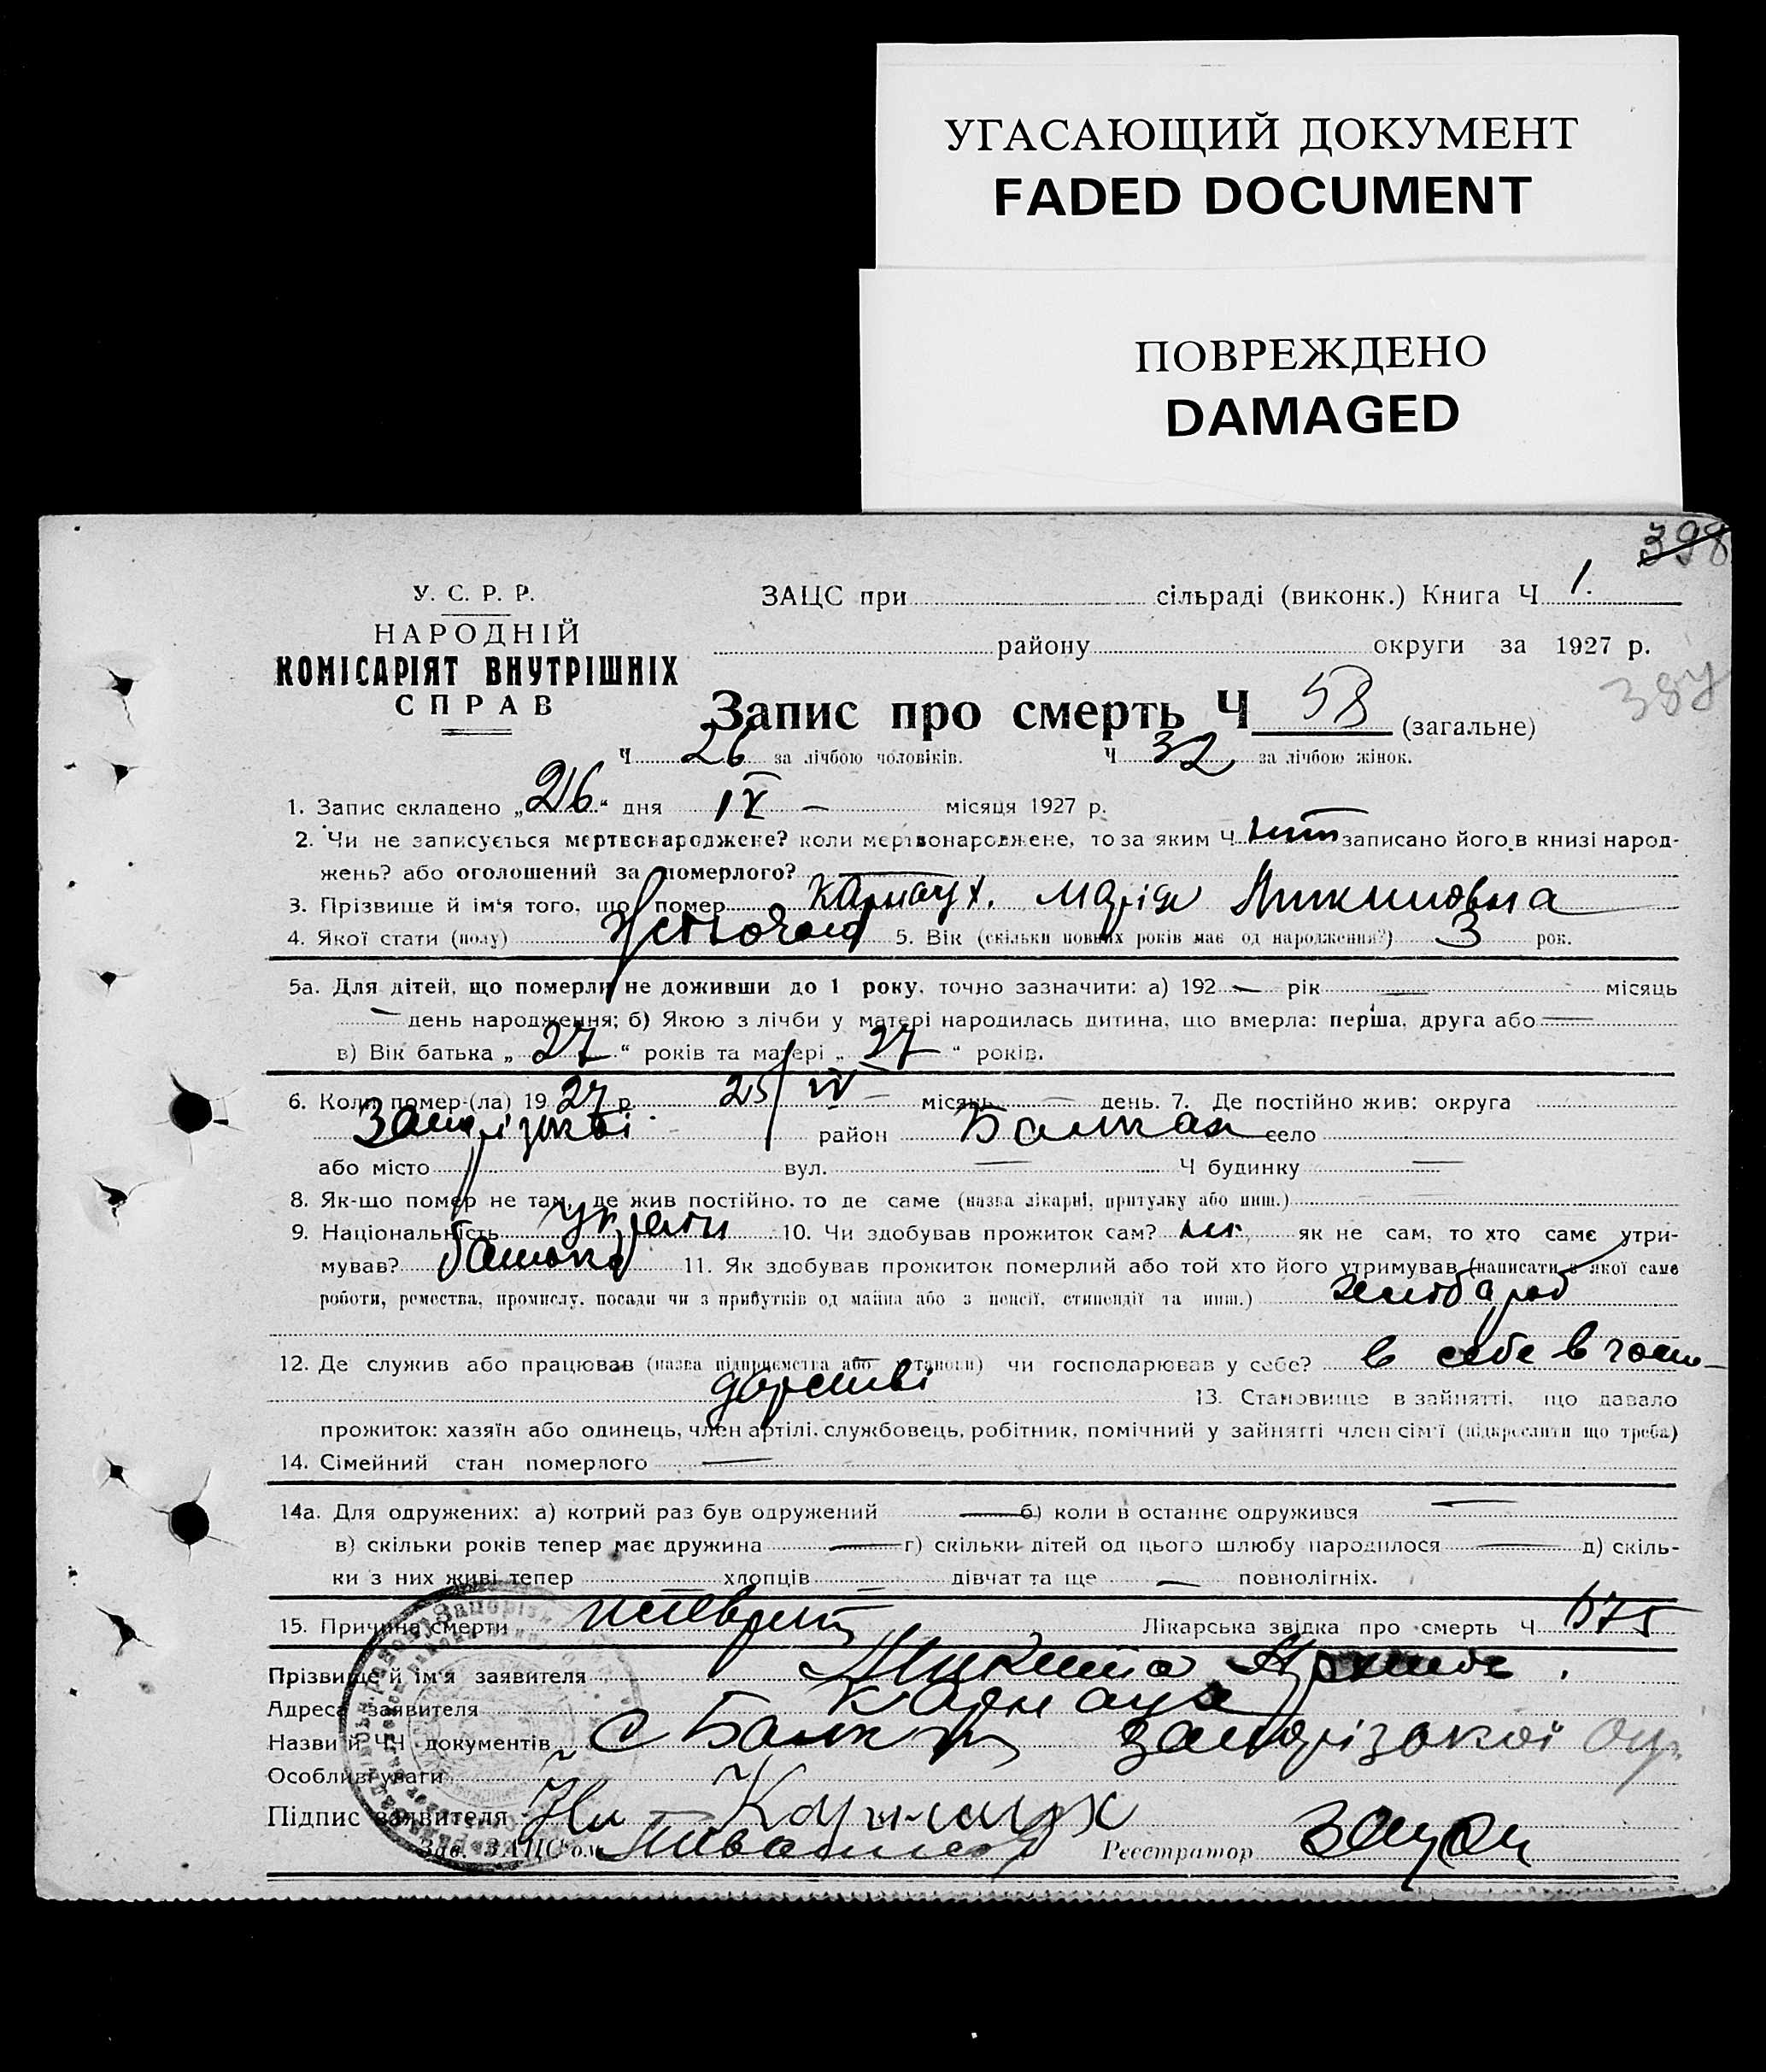 УГАСАЮЩИЙ ДОКУМЕНТ
FADED DOCUMENT
ПОВРЕЖДЕНО
DAMAGED
398
У. С. Р. Р.
НАРОДНІЙ
КОМІСАРІЯТ ВНУТРІШНІХ
СПРАВ
ЗАЦС при сільраді (виконк.) Книга Ч 1.
району округи за 1927 р.
Запис про смерть Ч 58 (загальне)
Ч 26 за лічбою чоловіків. Ч 32 за лічбою жінок.
1. Запис складено „26“ дня IX — місяця 1927 р.
2. Чи не записується мертвонароджене? коли мертвонароджене, то за яким Ч записано його в книзі народ-
жень? або оголошений за померлого?
3. Прізвище й ім'я того, що помер Карнаух. Марія Микитовна
4. Якої стати (полу) 5. Вік (скільки повних років має од народження?) 3 рок.
5а. Для дітей, що померли не доживши до 1 року, точно зазначити: а) 192 — рік — місяць
— день народження; б) Якою з лічби у матері народилась дитина, що вмерла: перша, друга або —
в) Вік батька „ 27 “ років та матері „ 27 “ років.
6. Коли помер-(ла) 19 27 р. 25/ місяць — день. 7. Де постійно жив: округа
Запорізькі район Балках село
або місто вул. — Ч будинку —
8. Як-що помер не там, де жив постійно, то де саме (назва лікарні, притулку або инш.)
9. Національність 10. Чи здобував прожиток сам? ні, як не сам, то хто саме утри-
мував? батько 11. Як здобував прожиток померлий або той хто його утримував (написати з якої саме
роботи, ремества, промислу, посади чи з прибутків од майна або з пенсії, стипендії та инш.) хлібороб
12. Де служив або працював (назва підприємства або установи) чи господарював у себе? в себе в госпо-
дарстві 13. Становище в зайнятті, що давало
прожиток: хазяїн або одинець, член артілі, службовець, робітник, помічний у зайнятті член сім'ї (підкреслити що треба)
14. Сімейний стан померлого —
14а. Для одружених: а) котрий раз був одружений — б) коли в останнє одружився —
в) скільки років тепер має дружина — г) скільки дітей од цього шлюбу народилося — д) скіль-
ки з них живі тепер — хлопців — дівчат та ще — повнолітніх.
15. Причина смерти Лікарська звідка про смерть Ч 575
Прізвище й ім'я заявителя Микита
Адреса заявителя Карнаух
Назви й ЧЧ документів с Балки Запорізької окр.
Особливі уваги
Підпис заявителя Карнаух
Зав. ЗАЦС'ом Реєстратор